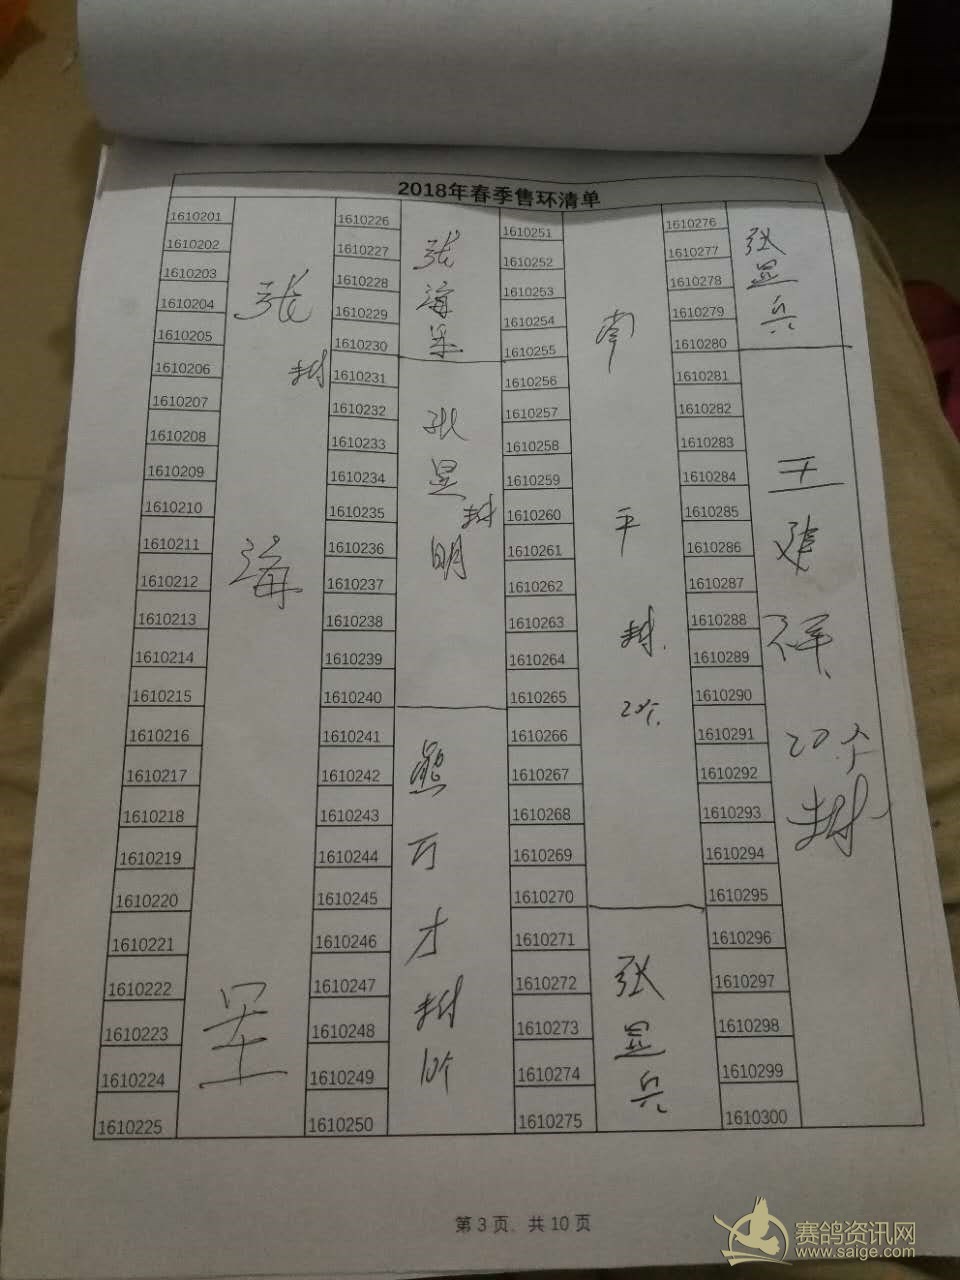 2018年春季售环清单
1610201
1610202
1610203
1610204
1610205
1610206
1610207
1610208
1610209
1610210
1610211
1610212
1610213
1610214
1610215
1610216
1610217
1610218
1610219
1610220
1610221
1610222
1610223
1610224
1610225
张
封
海
1610226
1610227
1610228
1610229
1610230
1610231
1610232
1610233
1610234
1610235
1610236
1610237
1610238
1610239
1610240
1610241
1610242
1610243
1610244
1610245
1610246
1610247
1610248
1610249
1610250
张
海
张
显
封
明
熊
万
才
封
10个
1610251
1610252
1610253
1610254
1610255
1610256
1610257
1610258
1610259
1610260
1610261
1610262
1610263
1610264
1610265
1610266
1610267
1610268
1610269
1610270
1610271
1610272
1610273
1610274
1610275
南
平
封
20个
张
显
兵
1610276
1610277
1610278
1610279
1610280
1610281
1610282
1610283
1610284
1610285
1610286
1610287
1610288
1610289
1610290
1610291
1610292
1610293
1610294
1610295
1610296
1610297
1610298
1610299
1610300
张
显
兵
王
建
祥
20个
封
第 3 页, 共 10 页
赛鸽资讯网
www.saige.com